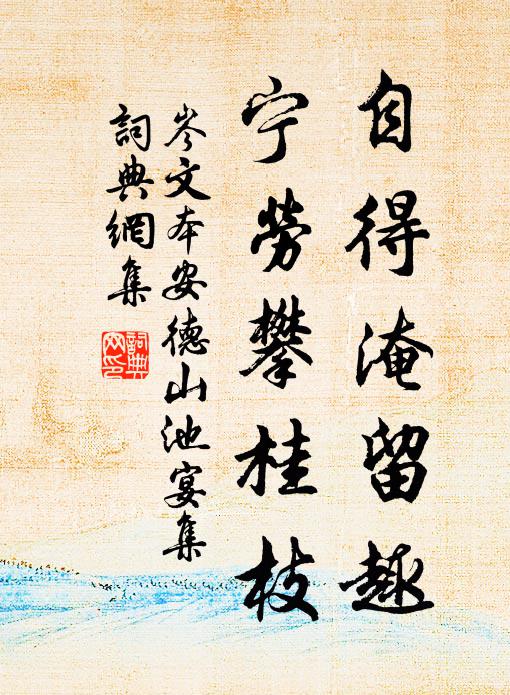 自得淹留趣
宁勞攀桂枝
岑文本安德山池宴集
詞典網集
詞典网印